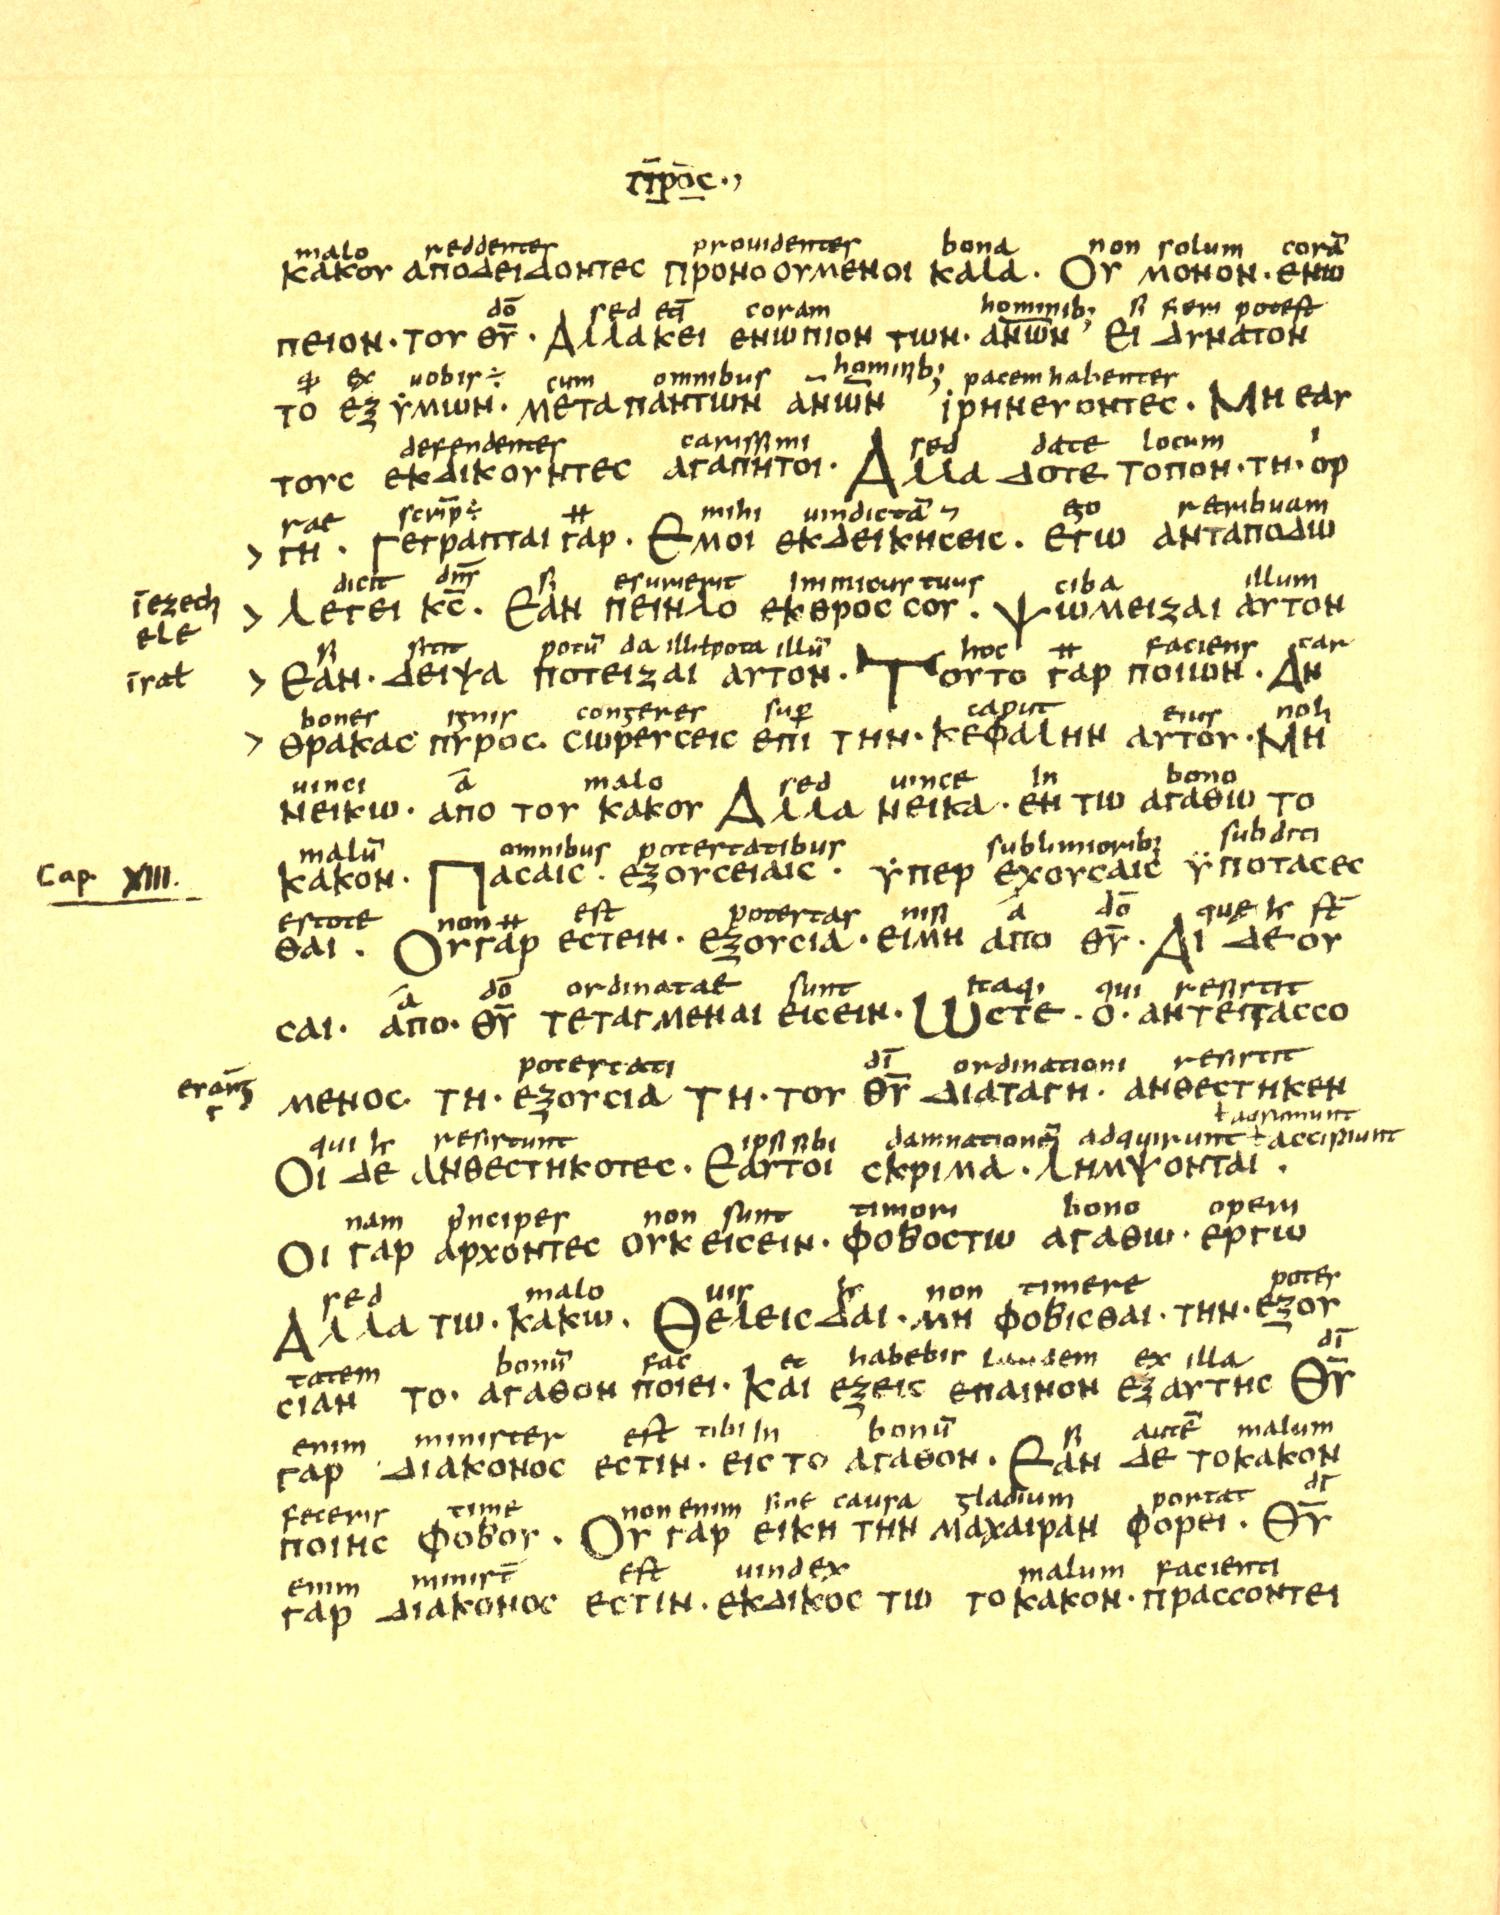 π̅ρο̅ς·,
malo reddentes prouidentes bona non solum corā
κακου αποδειδοντες προνοουμενοι καλα· Ου μονον· ενω
do̅ sed et̄ coram hominib; si fieri potest
πειον· του θ̅υ̅· Αλλα κει ενωπιον των· α̅ν̅ω̅ν̅ Ει δυνατον
ex uobis÷ cum omnibus hominib; pacem habentes
το εξ ϋμων· μετα παντων ανω̅ν ϊρηνευοντες· Μη εαυ
defendentes carissimi sed date locum i
τους εκδικουντες αγαπητοι· Αλλα δοτε τοπον· τη· ορ
rae scrip̄÷ mihi uindictā ego retribuam
> γη· Γεγραπται γαρ· Εμοι εκδεικησεις· εγω ανταποδω
dicit dn̅s si esurierit inimicus tuus ciba illum
ιezech
ele
> λεγει κ̅ς̅· Εαν πεινλο εκθρος σου· Ψωμειζαι αυτον
si sitit potū da illi ł pota illū hoc faciens car
> Εαν· δειψα ποτειζαι αυτον· Τουτο γαρ ποιων· Αν
bones ignis congeres sup caput eius noli
> θρακας πυρος· σωρευσεις επι την· κεφαλην αυτου· Μη
uinci ā malo sed uince in bono
νεικω· απο του κακου Αλλα νεικα· εν τω αγαθω το
malū omnibus potestatibus sublimiorib; subditi
Cap. XIII.
κακον· Πασαις· εξουσειαις· ϋπερ εχουσαις ϋποτασες
estote non est potestas nisi ā do̅
θαι· Ου γαρ εστειν· εξουσια· ειμη απο θ̅υ̅· Αι δε ου
ā do̅ ordinatae sunt itaq; qui resistit
σαι· απο· θ̅υ̅ τεταγμεναι εισειν· Ωστε· ο· αντετασσο
potestati di̅ ordinationi resistit
μενος τη· εξουσια Τη· του θ̅υ̅ διαταγη· ανθεστηκεν
ł adsumunt
qui resistunt ipsi sibi damnationē adquirunt ł accipiunt
Οι δε ανθεστηκοτες· Εαυτοι σκριμα· λημψονται·
nam p̄ncipes non sunt timori bono operi
Οι γαρ αρχοντες ουκ εισειν· φοβοστω αγαθω· εργω
sed malo uis non timere potes
Αλλα τω· κακω· Θελεις δαι· μη φοβισθαι· την· εξου
tatem bonū fac et habebis laudem ex illa di̅
σιαν το· αγαθον ποιει· Και εξεις επαινον εξ αυτης Θ̅υ̅
enim minister est tibi in bonū si autē malum
γαρ διακονος εστιν· εις το αγαθον· Εαν δε το κακον
feceris time non enim sine causa gladium portat di̅
ποιης φοβου· Ου γαρ εικη την μαχαιραν φορει· Θ̅υ̅
enim minist̄ est uindex malum facienti
γαρ διακονος εστιν· εκδικος τω το κακον· πρασσοντει